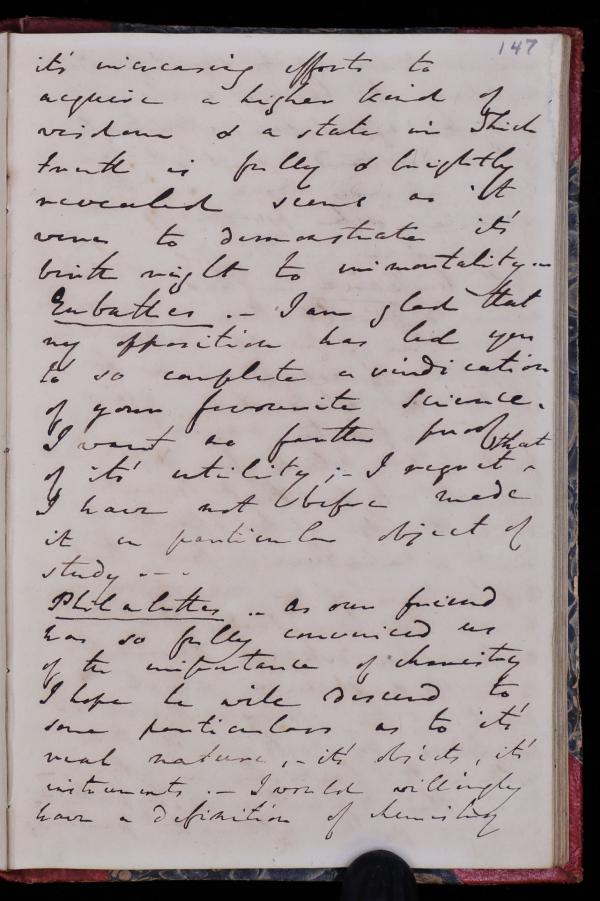 147
its increasing efforts to
acquire a higher kind of
wisdom & a state in which
truth is fully & brightly
revealed seems as it
were to demonstrate its'
birth right to immortality. -
Eubathes .- I am glad that
my opposition has led you
to so complete a vindication
of your favourite science.
I want no further proof
of its' utility; - I regret that
I have not before made
it a particular object of
study - - .
Philalethes .. As our friend
has so fully convinced us
of the importance of chemistry
I hope he will descend to
some particulars as to its'
real nature, - its' objects, its'
instruments . - I would willingly
have a definition of chemistry